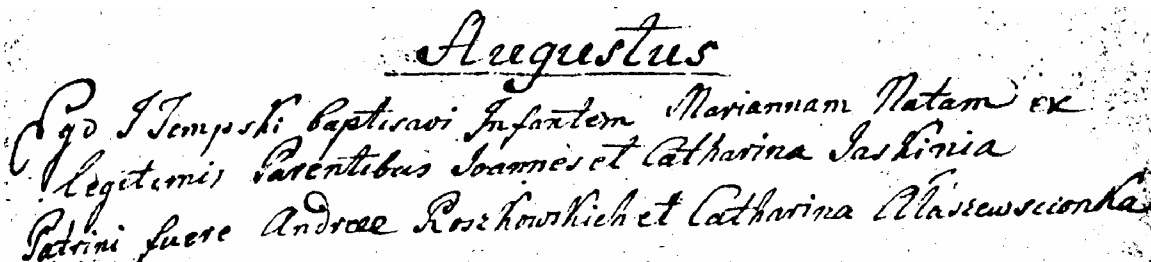 Augustus
Ego I Tempski baptisavi Infantem Mariannam Natam ex
legitimis Parentibus Joannes et Catharina Jaskinia
Patrini fuere Andreae Roszkowskich et Catharina